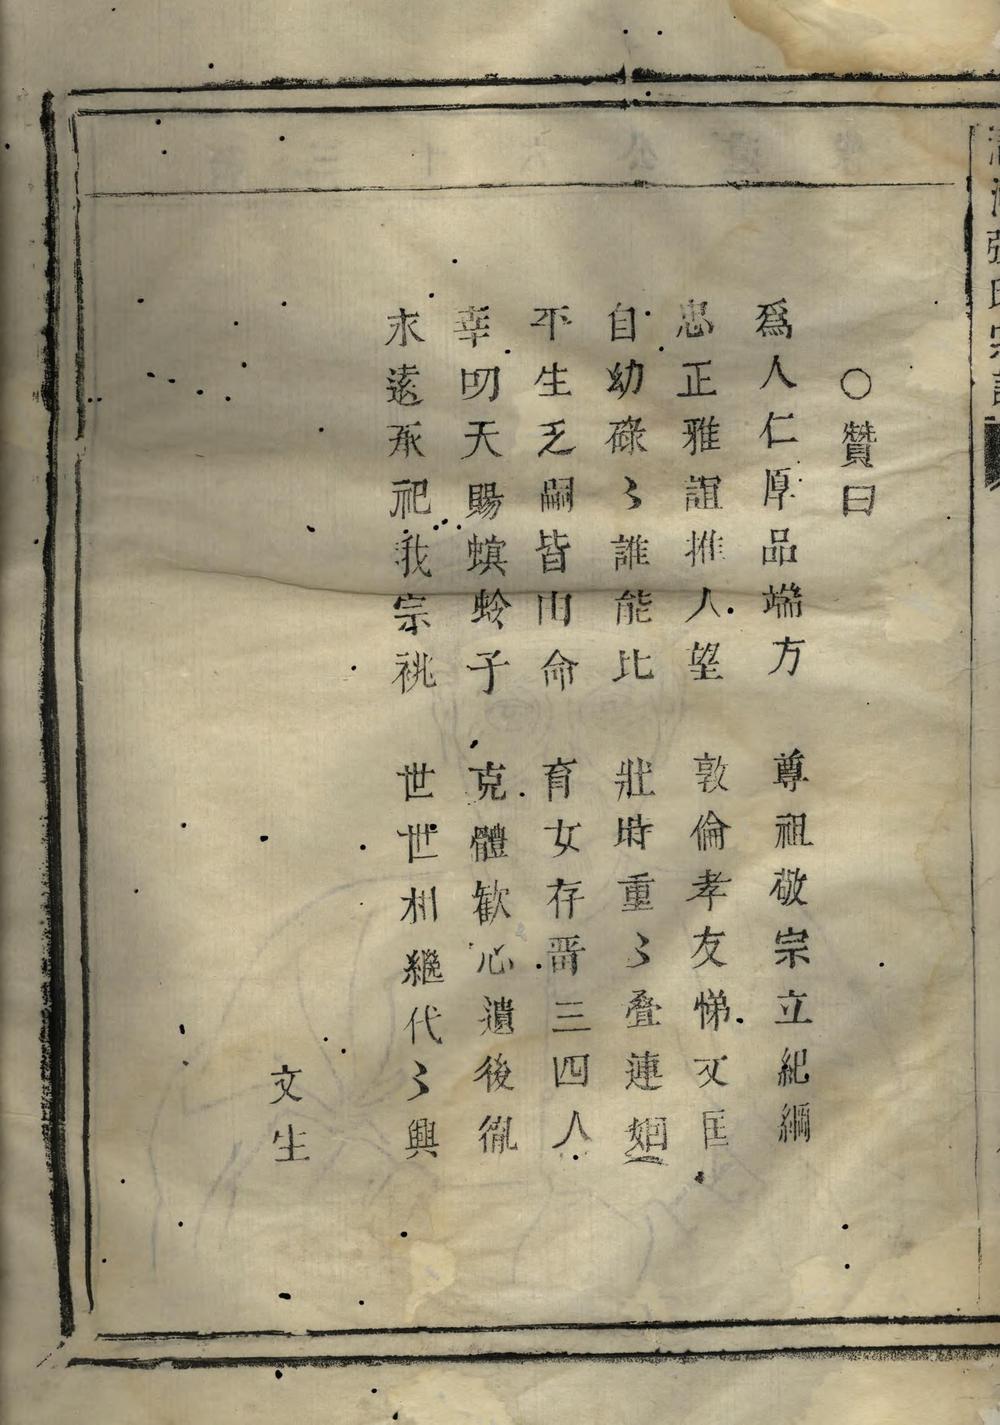 ○贊曰
爲人仁厚品端方　尊祖敬宗立紀綱
忠正雅誼推人望　敦倫孝友悌又匡
自幼碌〻誰能比　壯時重〻叠連廻
平生乏嗣皆由命　育女存晋三四人
幸叨天賜螟蛉子　克體歓心遺後胤
永遠承祀我宗祧　世世相繼代〻興
文生
張氏宗譜